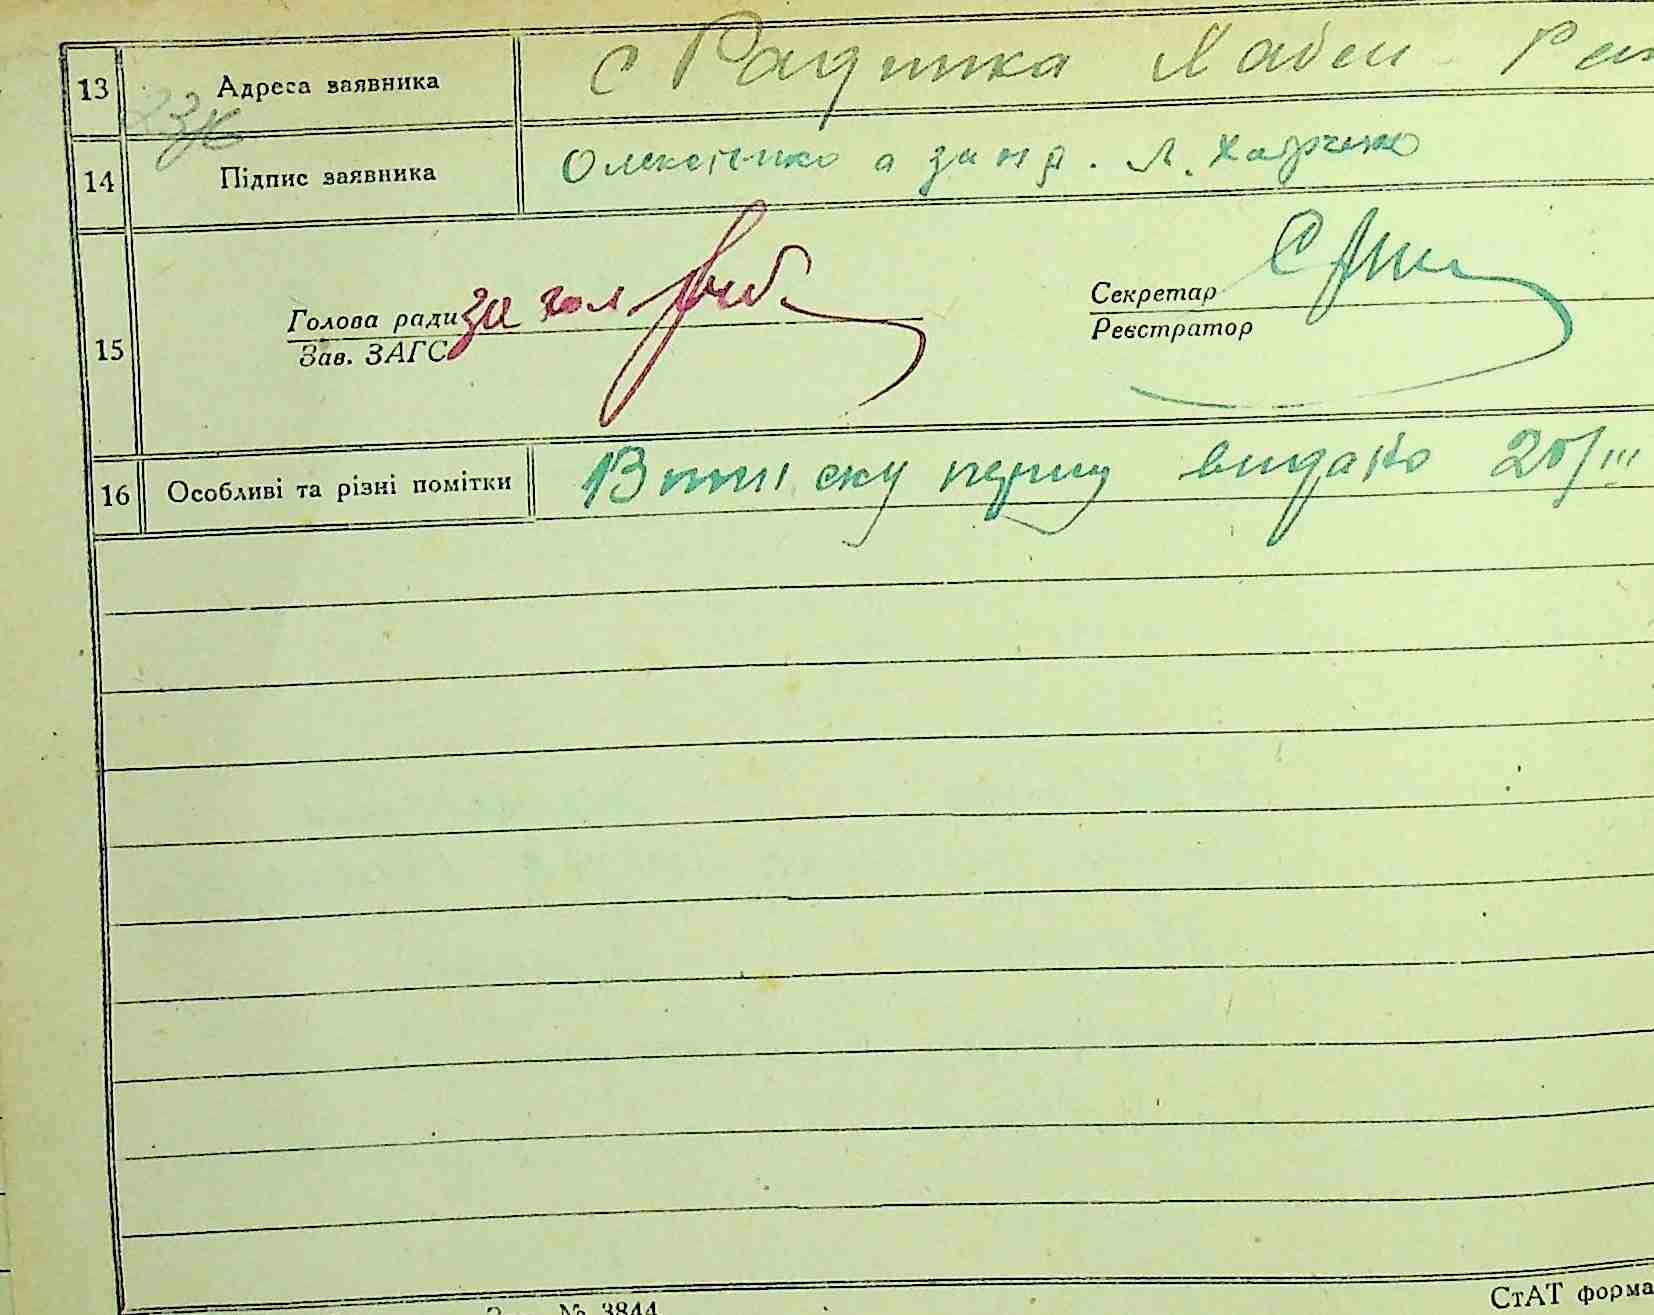 13 Адреса заявника с Радинка Хабен Рай
14 Підпис заявника Олексієнко а за нр. Л. Харченко
15 Голова ради за гол
Зав. ЗАГС
Секретар
Реєстратор
16 Особливі та різні помітки Випіску першу видано 20/III
№ 3844
СтАТ форма